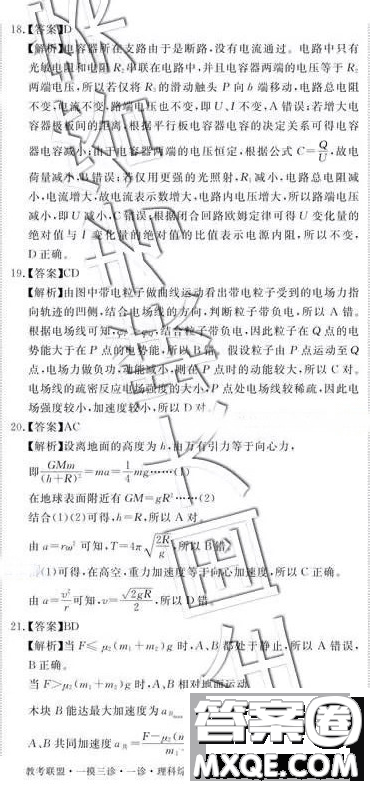 18.【答案】D
【解析】电容器所在支路由于是断路,没有电流通过。电路中只有
光敏电阻和电阻R₂串联在电路中,并且电容器两端的电压等于R₂
两端电压,所以若仅将R₂的滑动触头P向b端移动,电路总电阻
不变,电流不变,路端电压也不变,即U、I不变,A错误;若增大电
容器极板间的距离,根据平行板电容器电容的决定关系可得电容
器电容减小;由于电容器两端的电压恒定,根据公式C=Q/U,故电
荷量减小,B错误;若仅用更强的光照射,R₁减小,电路总电阻减
小,电流增大,故电流表示数增大,电路内电压增大,所以路端电压
减小,即U减小,C错误;根据闭合回路欧姆定律可得U变化量的
绝对值与I变化量的绝对值的比值表示电源内阻,所以不变,
D正确。
19.【答案】CD
【解析】由图中带电粒子做曲线运动看出带电粒子受到的电场力指
向轨迹的凹侧,结合电场线的方向,判断粒子带负电,所以A错。
根据电场线可知,结合粒子带负电,因此粒子在Q点的电
势能大于在P点的电势能,所以B错。假设粒子由P点运动至Q
点,电场力做负功,动能减小,则在P点时的动能较大,所以C对。
电场线的疏密反应电场强度的大小,P点处电场线较稀疏,因此电
场强度较小,加速度较小,所以D对。
20.【答案】AC
【解析】设离地面的高度为h,由万有引力等于向心力,
即GMm/(h+R)²=ma=1/4mg……(1)
在地球表面附近有GM=gR²……(2)
结合(1)(2)可得,h=R,所以A对。
由a=rω²可知,T=4π√(2R/g),所以B错。
(1)可得,在高空,重力加速度等于向心加速度,所以C正确。
由a=v²/r可知,v=√(2gR)/2,所以D错。
21.【答案】BD
【解析】当F≤μ₂(m₁+m₂)g时,A、B都处于静止,所以A错误,
B正确。
当F>μ₂(m₁+m₂)g时,A、B相对地面运动
木块B能达最大加速度为a
A、B共同加速度a共=F-μ₂(m
m₁
教考联盟·一摸三诊·一诊·理科综
答案圈
MXQE.COM